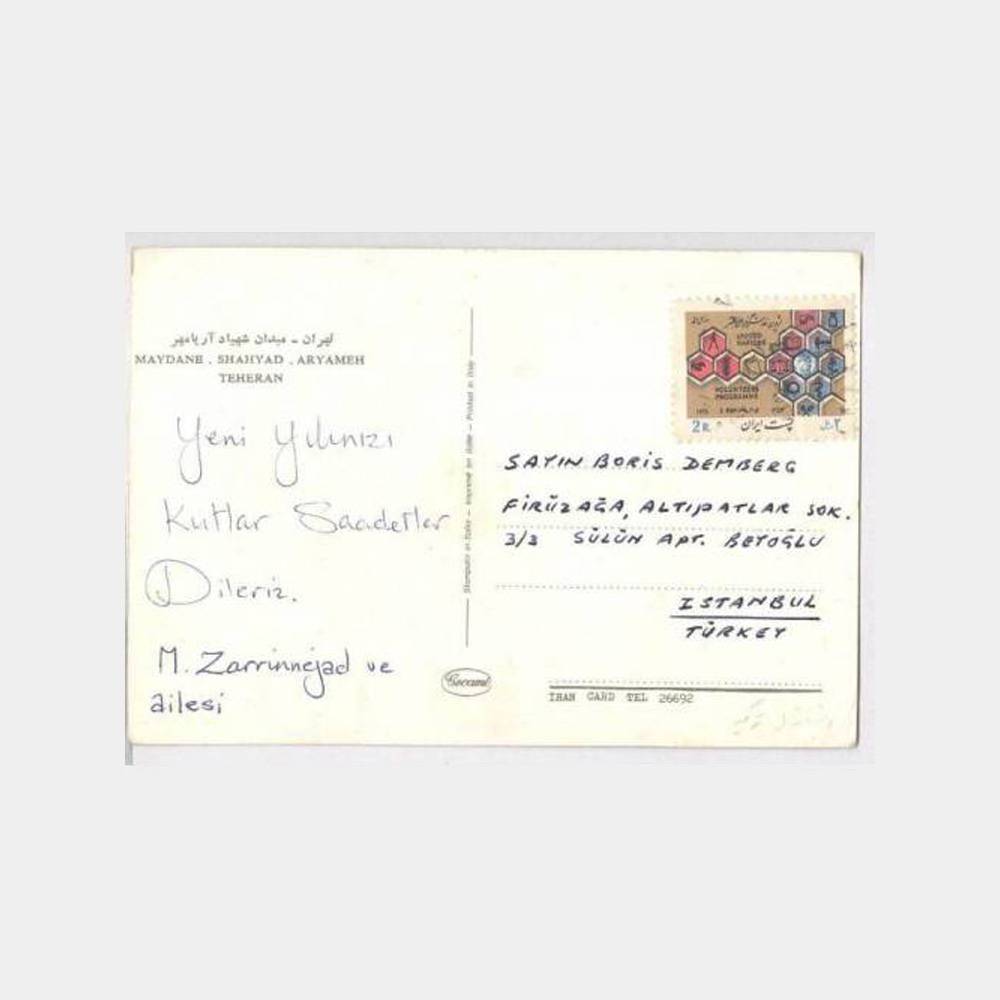 تهران - میدان شهیاد آریامهر
MAYDANE . SHAHYAD . ARYAMEH
TEHERAN
Yeni Yılınızı
Kutlar Saadetler
Dileriz.
M. Zarrinnejad ve
ailesi
Printed in Italy
Cecami
UNITED
NATIONS
VOLUNTEERS
PROGRAMME
2R.
پست ایران
SAYIN BORİS DEMBERG
FİRÜZAĞA, ALTIPATLAR SOK.
3/3 SÜLÜN APT. BEYOĞLU
ISTANBUL
TÜRKEY
IRAN CARD TEL 26692